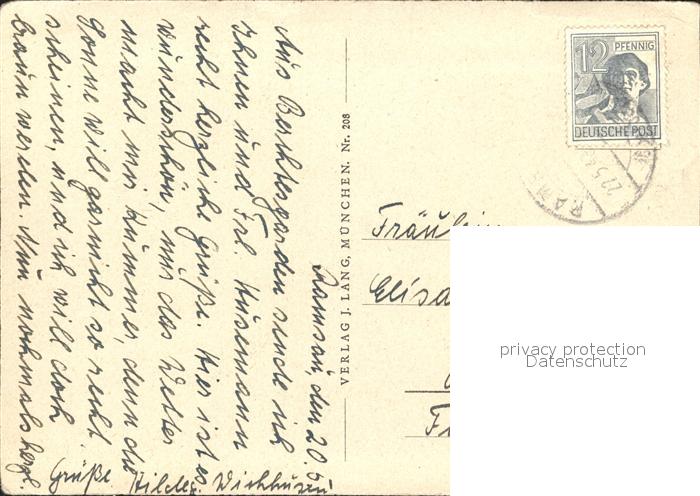 Ramsau, den 20.5.
Aus Berchtesgaden sende ich
Ihnen und Frl. Husemann
recht herzliche Grüße. Hier ist es
wunderschön, nur das Wetter
macht mir Kummer, denn die
Sonne will garnicht so recht
scheinen, und ich will doch
braun werden. Nun nochmals herzl.
Grüße Hildeg.
VERLAG J. LANG, MÜNCHEN. Nr. 208
12 PFENNIG
DEUTSCHE POST
Fräulein
Elisa
privacy protection
Datenschutz